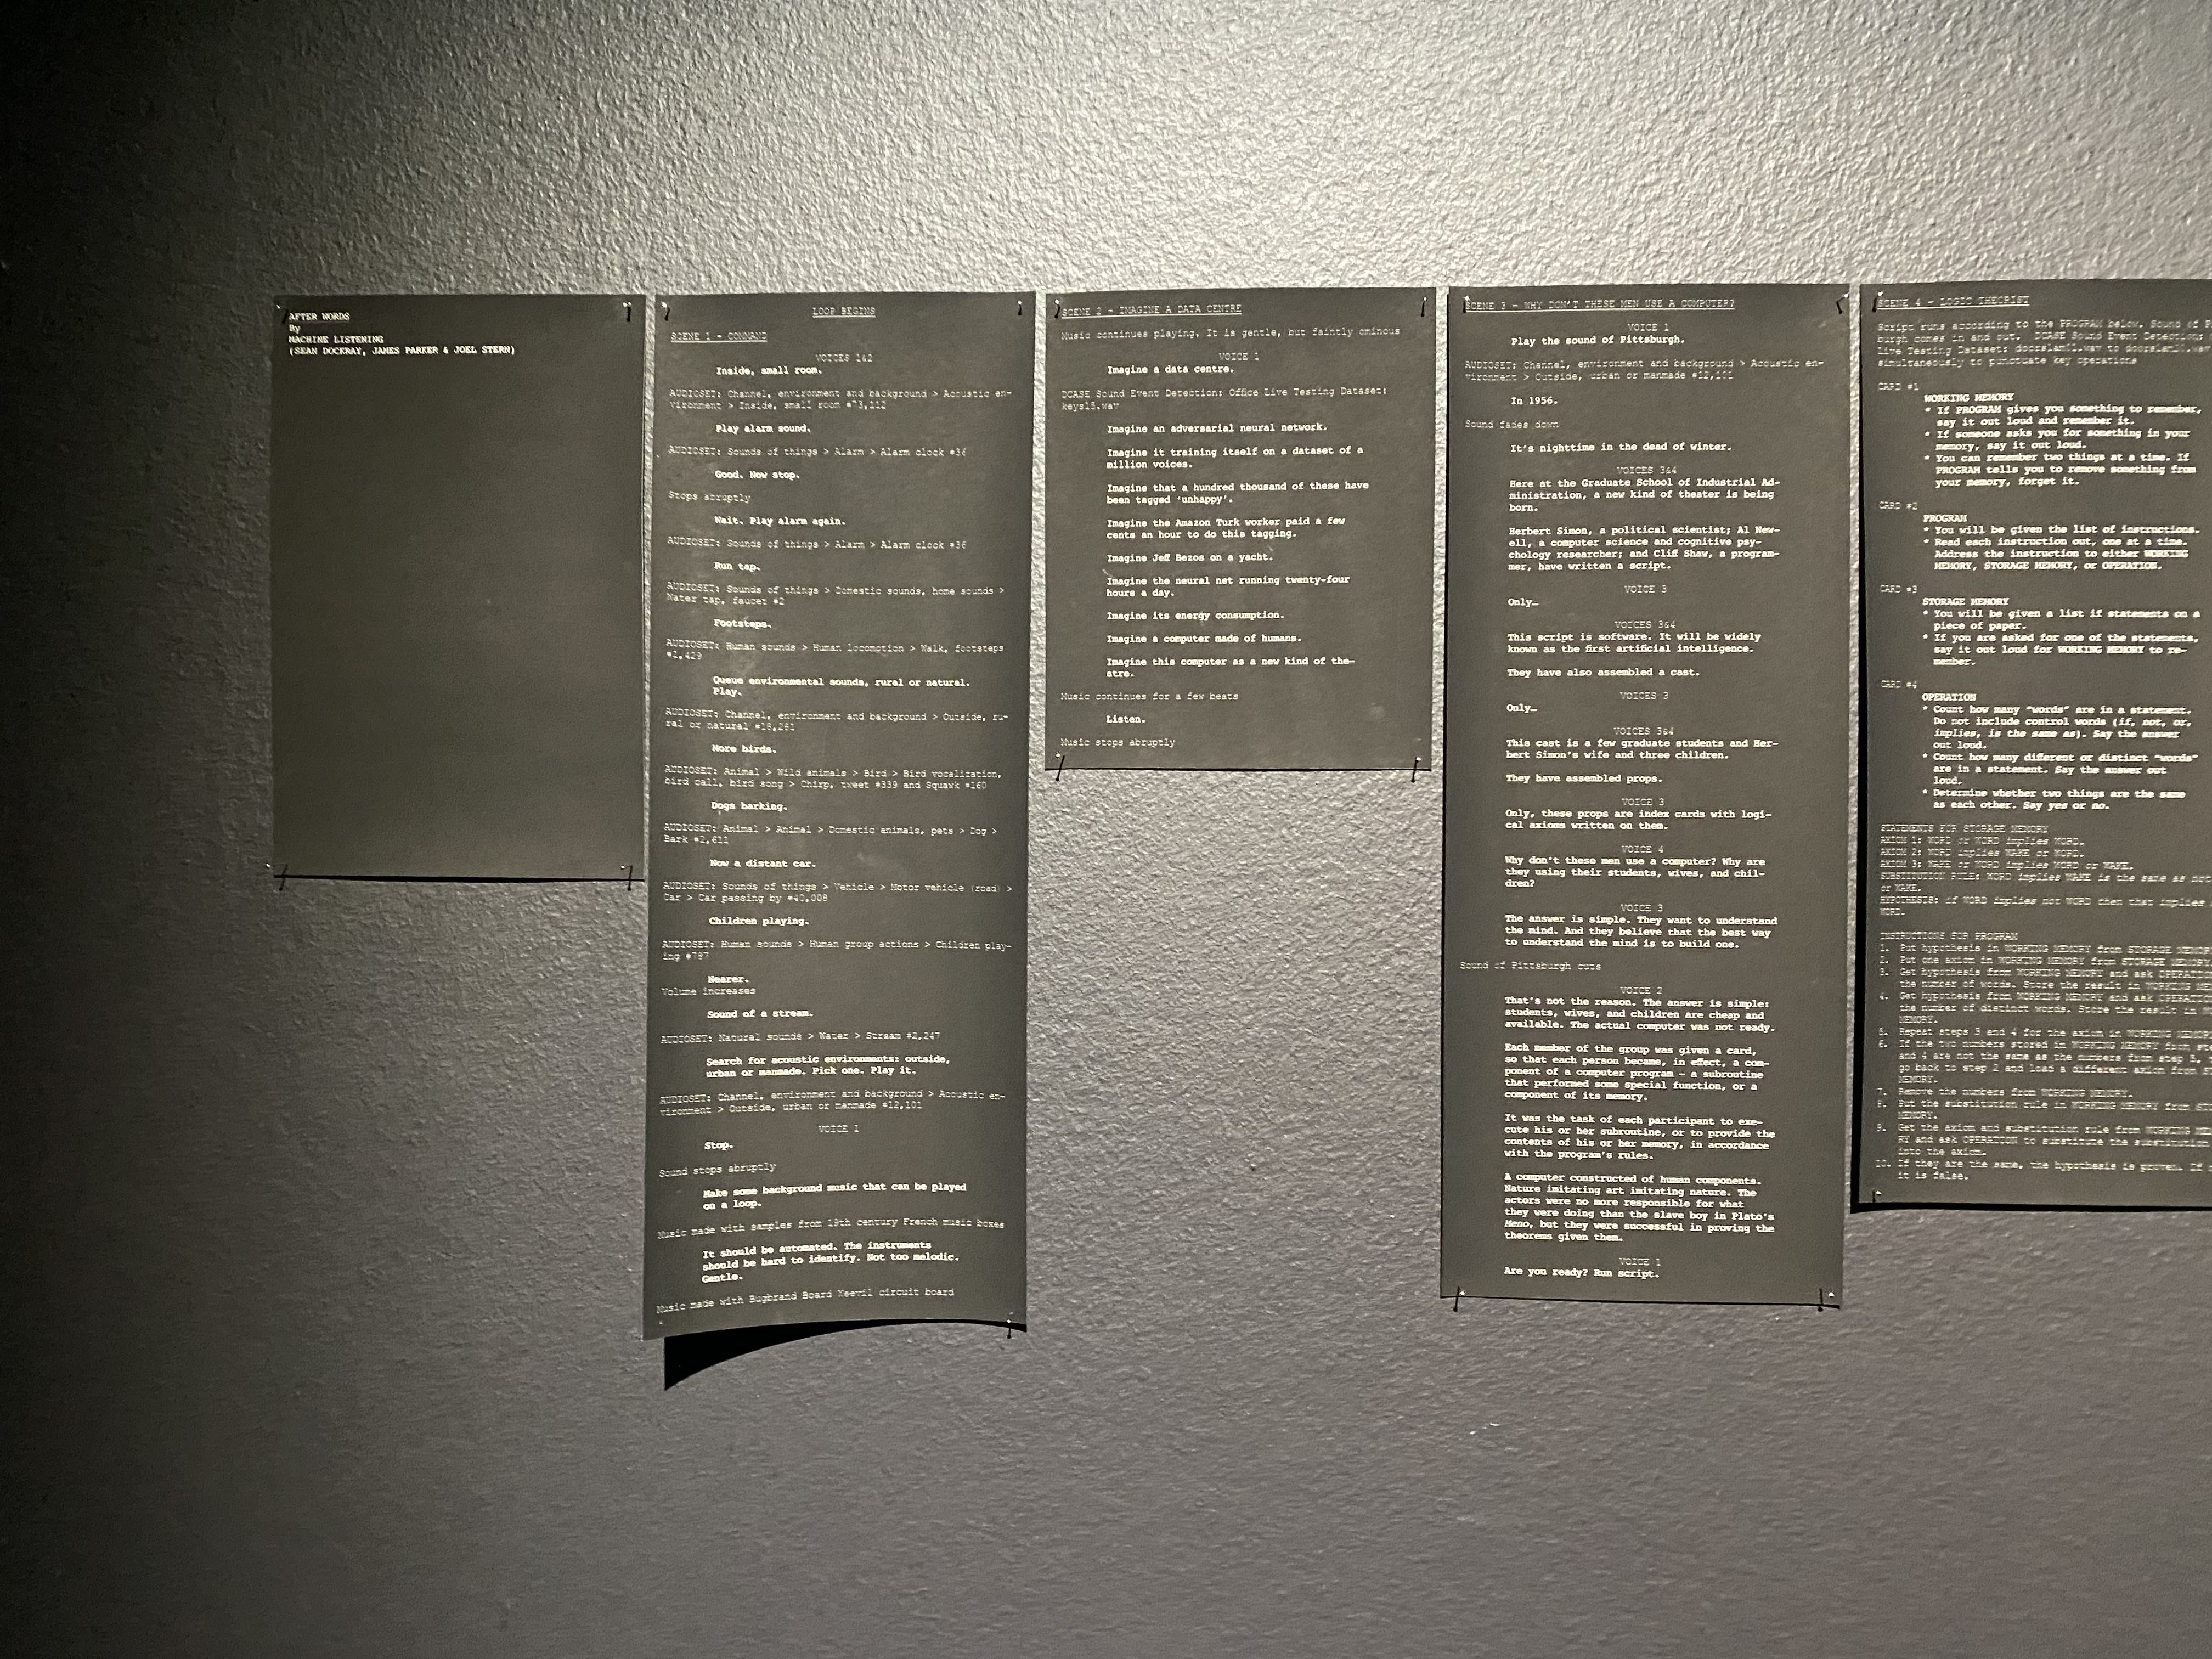 AFTER WORDS
By
MACHINE LISTENING
(SEAN DOCKRAY, JAMES PARKER & JOEL STERN)
LOOP BEGINS
SCENE 1 - COMMAND
VOICES 1&2
Inside, small room.
AUDIOSET: Channel, environment and background > Acoustic en-
vironment > Inside, small room #73,112
Play alarm sound.
AUDIOSET: Sounds of things > Alarm > Alarm clock #36
Good. Now stop.
Stops abruptly
Wait. Play alarm again.
AUDIOSET: Sounds of things > Alarm > Alarm clock #36
Run tap.
AUDIOSET: Sounds of things > Domestic sounds, home sounds >
Water tap, faucet #2
Footsteps.
AUDIOSET: Human sounds > Human locomotion > Walk, footsteps
#1,429
Queue environmental sounds, rural or natural.
Play.
AUDIOSET: Channel, environment and background > Outside, ru-
ral or natural
More birds.
AUDIOSET: Animal > Wild animals > Bird > Bird vocalization,
bird call, bird song > Chirp, tweet #339 and Squawk #160
Dogs barking.
AUDIOSET: Animal > Animal > Domestic animals, pets > Dog >
Bark #2,611
Now a distant car.
AUDIOSET: Sounds of things > Vehicle > Motor vehicle (road) >
Car > Car passing by #40,008
Children playing.
AUDIOSET: Human sounds > Human group actions > Children play-
ing #787
Nearer.
Volume increases
Sound of a stream.
AUDIOSET: Natural sounds > Water > Stream #2,247
Search for acoustic environments: outside,
urban or manmade. Pick one. Play it.
AUDIOSET: Channel, environment and background > Acoustic en-
vironment > Outside, urban or manmade #12,101
VOICE 1
Stop.
Sound stops abruptly
Make some background music that can be played
on a loop.
Music made with samples from 19th century French music boxes
It should be automated. The instruments
should be hard to identify. Not too melodic.
Gentle.
Music made with Bugbrand Board Weevil circuit board
SCENE 2 - IMAGINE A DATA CENTRE
Music continues playing. It is gentle, but faintly ominous
VOICE 1
Imagine a data centre.
DCASE Sound Event Detection: Office Live Testing Dataset:
keys15.wav
Imagine an adversarial neural network.
Imagine it training itself on a dataset of a
million voices.
Imagine that a hundred thousand of these have
been tagged ‘unhappy’.
Imagine the Amazon Turk worker paid a few
cents an hour to do this tagging.
Imagine Jeff Bezos on a yacht.
Imagine the neural net running twenty-four
hours a day.
Imagine its energy consumption.
Imagine a computer made of humans.
Imagine this computer as a new kind of the-
atre.
Music continues for a few beats
Listen.
Music stops abruptly
SCENE 3 - WHY DON'T THESE MEN USE A COMPUTER?
VOICE 1
Play the sound of Pittsburgh.
AUDIOSET: Channel, environment and background > Acoustic en-
vironment > Outside, urban or manmade #12,101
In 1956.
Sound fades down
It's nighttime in the dead of winter.
VOICES 3&4
Here at the Graduate School of Industrial Ad-
ministration, a new kind of theater is being
born.
Herbert Simon, a political scientist; Al New-
ell, a computer science and cognitive psy-
chology researcher; and Cliff Shaw, a program-
mer, have written a script.
VOICE 3
Only…
VOICES 3&4
This script is software. It will be widely
known as the first artificial intelligence.
They have also assembled a cast.
VOICES 3
Only…
VOICES 3&4
This cast is a few graduate students and Her-
bert Simon's wife and three children.
They have assembled props.
VOICE 3
Only, these props are index cards with logi-
cal axioms written on them.
VOICE 4
Why don't these men use a computer? Why are
they using their students, wives, and chil-
dren?
VOICE 3
The answer is simple. They want to understand
the mind. And they believe that the best way
to understand the mind is to build one.
Sound of Pittsburgh cuts
VOICE 2
That's not the reason. The answer is simple:
students, wives, and children are cheap and
available. The actual computer was not ready.
Each member of the group was given a card,
so that each person became, in effect, a com-
ponent of a computer program – a subroutine
that performed some special function, or a
component of its memory.
It was the task of each participant to exe-
cute his or her subroutine, or to provide the
contents of his or her memory, in accordance
with the program's rules.
A computer constructed of human components.
Nature imitating art imitating nature. The
actors were no more responsible for what
they were doing than the slave boy in Plato's
Meno, but they were successful in proving the
theorems given them.
VOICE 1
Are you ready? Run script.
SCENE 4 - LOGIC THEORIST
Script runs according to the PROGRAM below. Sound of P
burgh comes in and out. DCASE Sound Event Detection:
Live Testing Dataset: doorslam01.wav to
simultaneously to punctuate key operations
CARD #1
WORKING MEMORY
* If PROGRAM gives you something to remember,
say it out loud and remember it.
* If someone asks you for something in your
memory, say it out loud.
* You can remember two things at a time. If
PROGRAM tells you to remove something from
your memory, forget it.
CARD #2
PROGRAM
* You will be given the list of instructions.
* Read each instruction out, one at a time.
Address the instruction to either WORKING
MEMORY, STORAGE MEMORY, or OPERATION.
CARD #3
STORAGE MEMORY
* You will be given a list if statements on a
piece of paper.
* If you are asked for one of the statements,
say it out loud for WORKING MEMORY to re-
member.
CARD #4
OPERATION
* Count how many "words" are in a statement.
Do not include control words (if, not, or,
implies, is the same as). Say the answer
out loud.
* Count how many different or distinct "words"
are in a statement. Say the answer out
loud.
* Determine whether two things are the same
as each other. Say yes or no.
STATEMENTS FOR STORAGE MEMORY
AXIOM 1: WORD or WORD implies WORD.
AXIOM 2: WORD implies WAKE or WORD.
AXIOM 3: WAKE or WORD implies WORD or WAKE.
SUBSTITUTION RULE: WORD implies WAKE is the same as not
or WAKE.
HYPOTHESIS: if WORD implies not WORD then that implies
WORD.
INSTRUCTIONS FOR PROGRAM
1. Put hypothesis in WORKING MEMORY from STORAGE MEMOR
2. Put one axiom in WORKING MEMORY from STORAGE MEMORY.
3. Get hypothesis from WORKING MEMORY and ask OPERATI
the number of words. Store the result in WORKING ME
4. Get hypothesis from WORKING MEMORY and ask OPERATI
the number of distinct words. Store the result in W
MEMORY.
5. Repeat steps 3 and 4 for the axiom in WORKING MEMOR
6. If the two numbers stored in WORKING MEMORY from ste
and 4 are not the same as the numbers from step 5,
go back to step 2 and load a different axiom from S
MEMORY.
7. Remove the numbers from WORKING MEMORY.
8. Put the substitution rule in WORKING MEMORY from STO
MEMORY.
9. Get the axiom and substitution rule from WORKING ME
RY and ask OPERATION to substitute the substitution
into the axiom.
10. If they are the same, the hypothesis is proven. If
it is false.